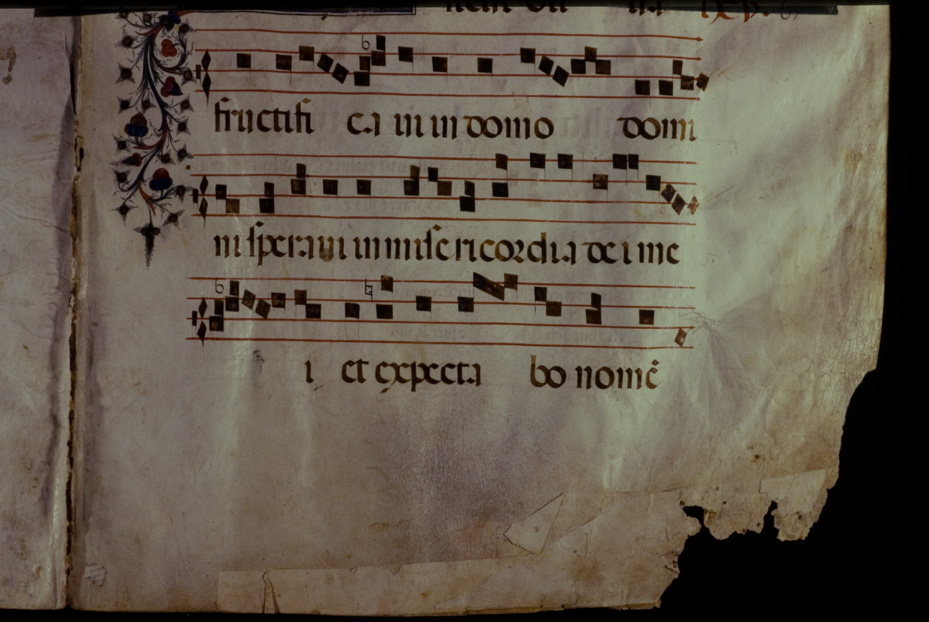 fructifi caui in domo domi
ni speraui in misericordia dei me
i et expecta bo nomē